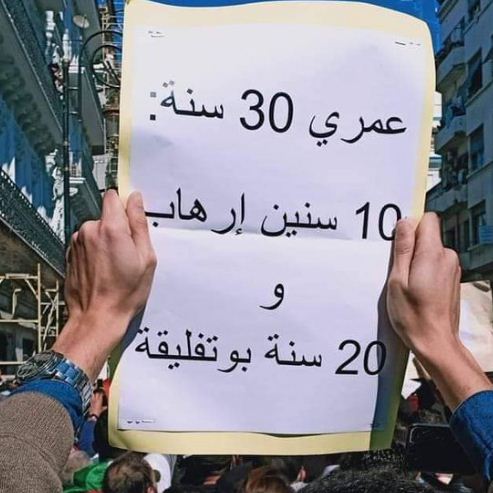 عمري 30 سنة:
10 سنين إرهاب
و
20 سنة بوتفليقة